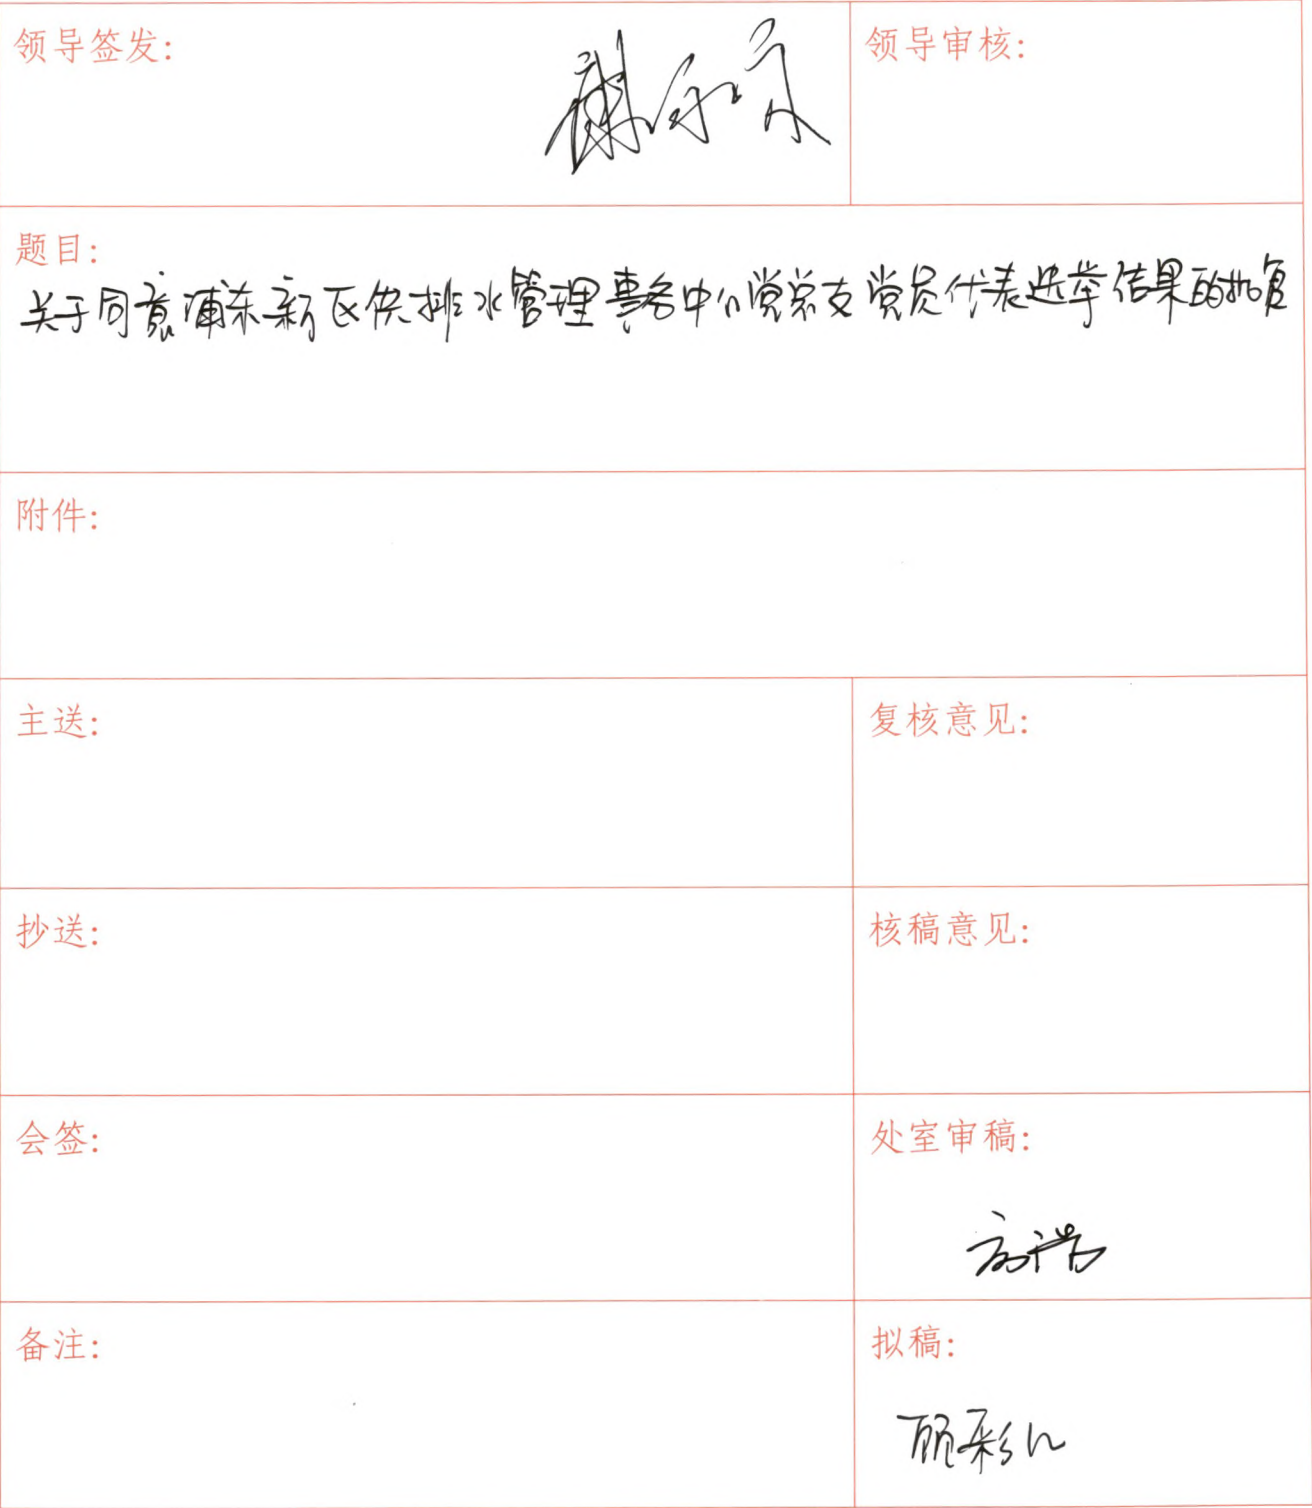 领导签发:
领导审核:
题目:
关于同意浦东新区供排水管理事务中心党总支党员代表选举结果的批复
附件:
主送:
复核意见:
抄送:
核稿意见:
会签:
处室审稿:
备注:
拟稿:
顾彩